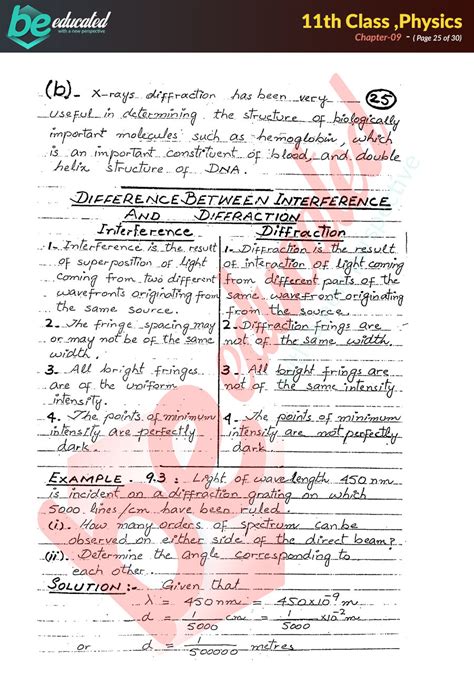 be educated
with a new perspective
11th Class ,Physics
Chapter-09 - ( Page 25 of 30)
(b)- X-rays diffraction has been very (25)
useful in determining the structure of biologically
important molecules such as hemoglobin, which
is an important constituent of blood, and double
helix structure of DNA.
DIFFERENCE BETWEEN INTERFERENCE
AND DIFFRACTION
Interference
1- Interference is the result
of superposition of light
coming from two different
wavefronts originating from
the same source.
2. The fringe spacing may
or may not be of the same
width.
3. All bright fringes
are of the uniform
intensity.
4. The points of minimum
intensity are perfectly
dark.
Diffraction
1- Diffraction is the result
of interaction of light coming
from different parts of the
same wavefront originating
from the source
2. Diffraction frings are
not of the same width.
3. All bright frings are
not of the same intensity
4. The points of minimum
intensity are not perfectly
dark.
EXAMPLE 9.3: Light of wavelength 450 nm
is incident on a diffraction grating on which
5000 lines/cm have been ruled
(i). How many orders of spectrum can be
observed on either side of the direct beam?
(ii). Determine the angle corresponding to
each other.
SOLUTION :- Given that
λ = 450 nm = 450×10⁻⁹ m
d = 1/5000 cm = 1/5000 ×10⁻² m
or d = 1/500000 metres
be educated